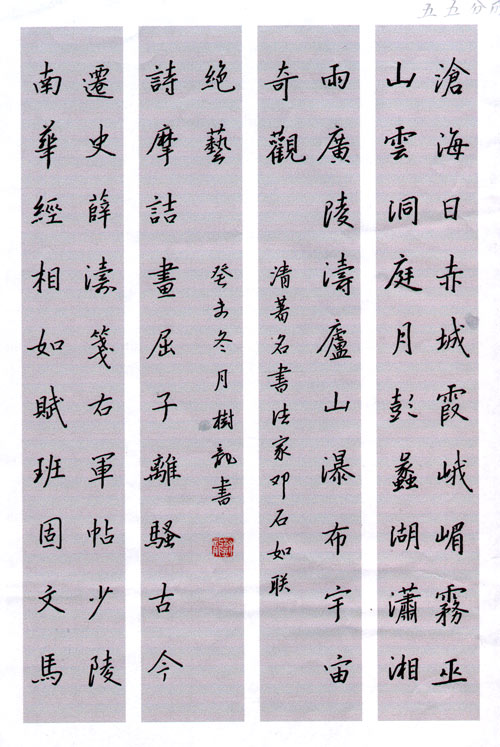 五五分
滄海日赤城霞峨嵋霧巫
山雲洞庭月彭蠡湖瀟湘
雨廣陵濤廬山瀑布宇宙
奇觀
清著名書法家邓石如联
南華經相如賦班固文馬
遷史薛濤箋右軍帖少陵
詩摩詰畫屈子離騷古今
絶藝
癸未冬月樹龍書